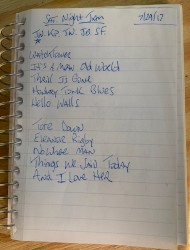 Sat Night Jam 7/29/17
JW. KD. JW. JD. SF.
Watchtower
It's A Mean Old World
Thrill Is Gone
Honkey Tonk Blues
Hello Walls
Tore Down
Eleanor Rigby
Nowhere Man
Things We Said Today
And I Love Her